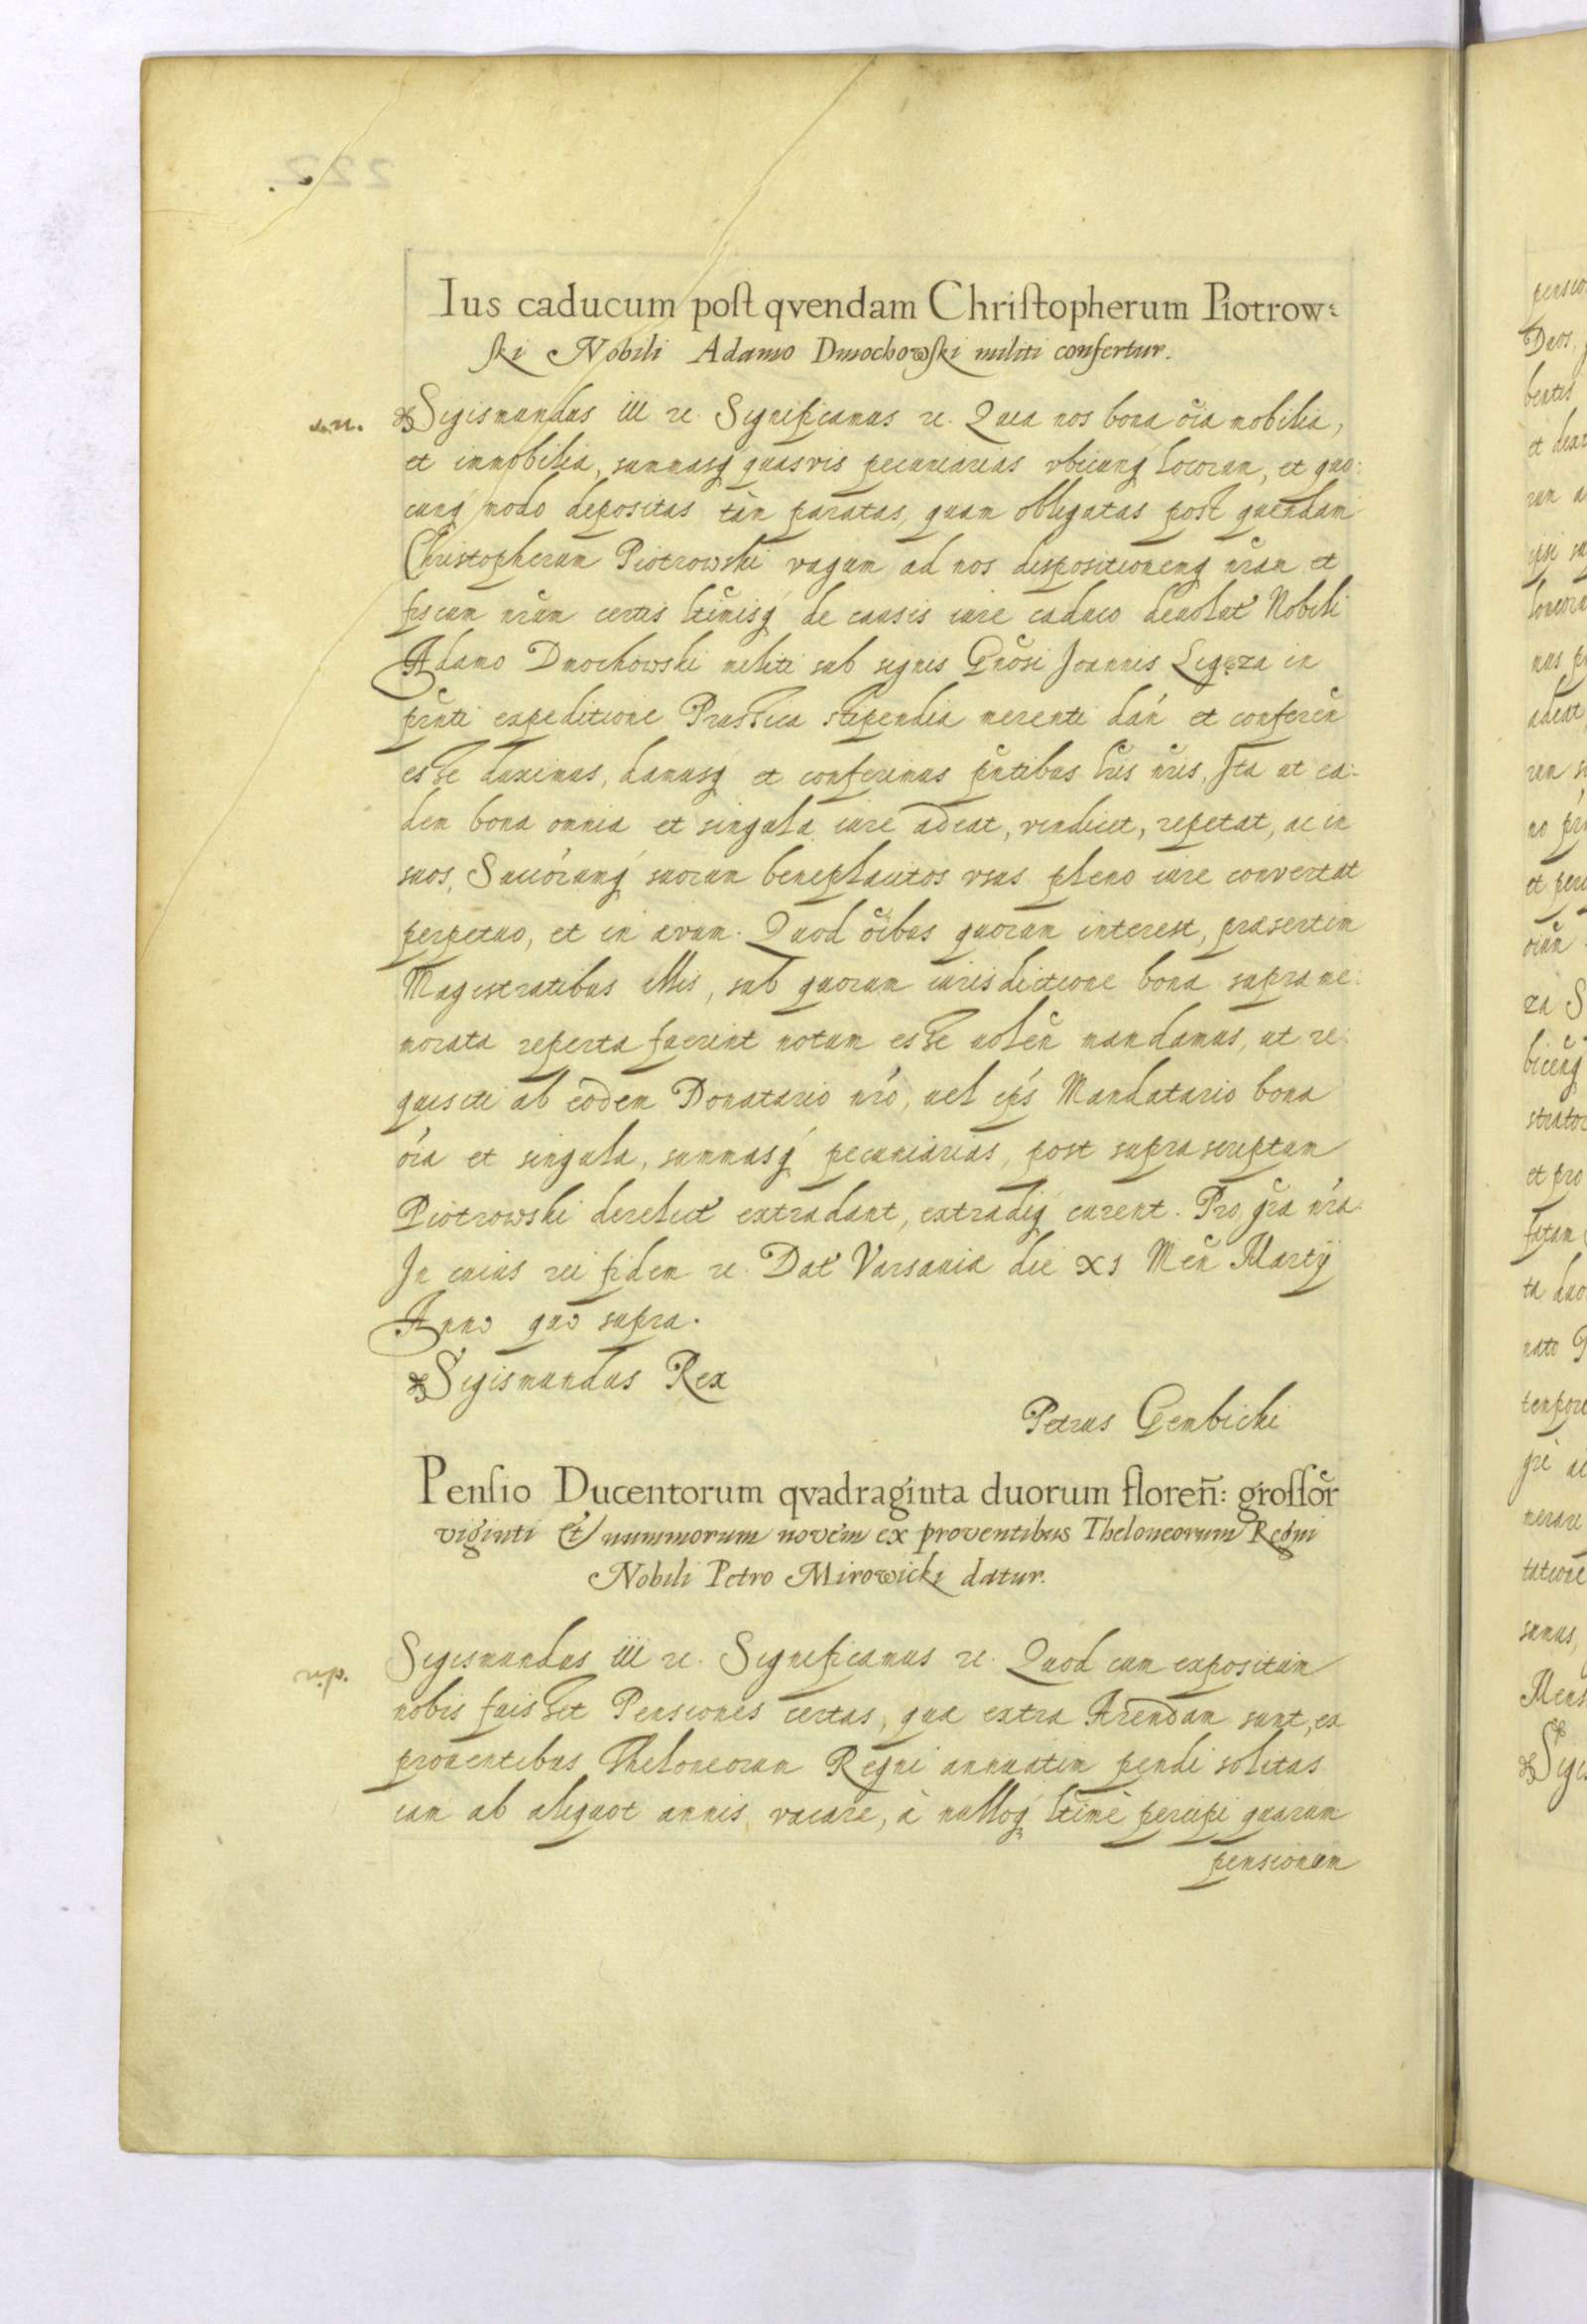 Ius caducum post qvendam Christopherum Piotrow:
ski Nobili Adamo Dmochowski militi confertur.
Sigismundus iii rc. Significamus rc. Quia nos bona oĩa mobilia,
et immobilia, summasq quasvis pecuniarias vbicunq locorum, et quo:
cunq modo depositas tàm paratas, quam obligatas post quendam
Christopherum Piotrowski vagum ad nos dispositionemq nr̃am et
fiscum nr̃um certis ltĩmisq de causis iure caduco deuolut Nobili
Adamo Dmochowski militi sub signis Gnõsi Joannis Ligęza in
pr̃nti expeditione Prussica stipendia merenti dań et conferen̄
esse duximus, damusq et conferimus pn̄tibus lr̃is nr̃is, Ita ut ea:
dem bona omnia et singula iure adeat, vendicet, repetat, ac in
suos, Succórumq suorum beneplacitos vsus pleno iure convertat
perpetuo, et in ævum. Quod oĩbus quorum interest, præsertim
Magistratibus illis, sub quorum iurisdictione bona supra me:
morata reperta fuerint notum esse uolen̄ mandamus, ut re:
quisiti ab eodem Donatario nr̃o, uel eiús Mandatario bona
oía et singula, summasq́ pecuniarias, post suprascriptum
Piotrowski derelict extradant, extradiq curent. Pro gr̃a nr̃a.
In cuius rei fidem rc. Dat Varsauiæ die XI Men̄ Martÿ
Anno quo supra.
Sigismundus Rex
Petrus Gembicki
Pensio Ducentorum qvadraginta duorum floreñ: grossor̃
viginti et nummorum novem ex proventibus Theloneorum Regni
Nobili Petro Mirowicki datur.
Sigismundus iii rc. Significamus rc. Quod cum expositum
nobis fuisset Pensiones certas, quæ extra Arendam sunt, ex
prouentibus Theloneorum Regni annuatim pendi solitas
iam ab aliquot annis vacare, à nulloq ltĩmè percipi quarum
pensionum